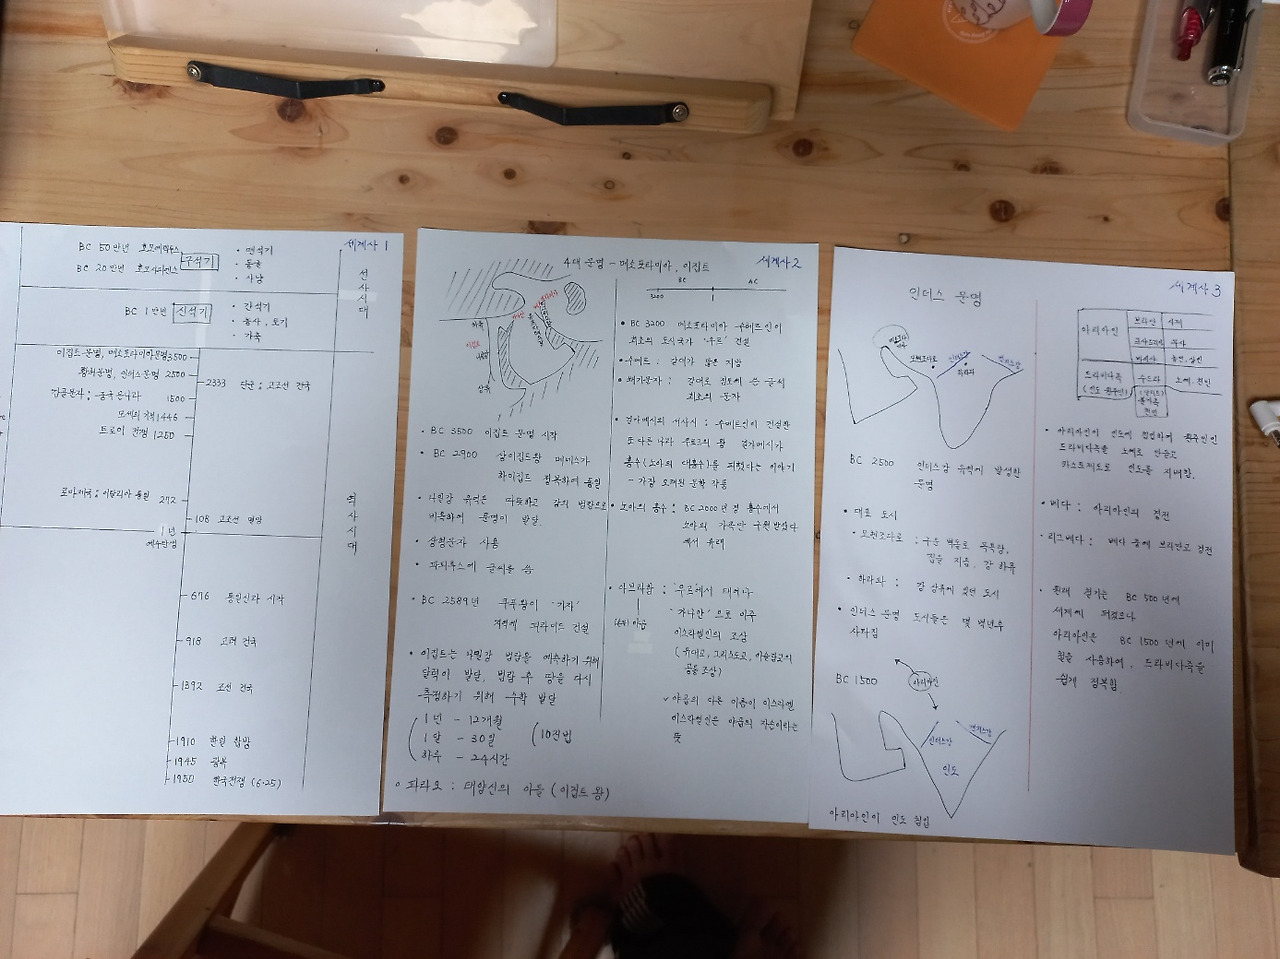 세계사 1
BC 50만년 호모에렉투스
구석기
BC 20만년 호모사피엔스
· 뗀석기
· 동굴
· 사냥
선사시대
BC 1만년 신석기
· 간석기
· 농사, 토기
· 가축
이집트문명, 메소포타미아문명 3500
황허문명, 인더스문명 2500
2333 단군 : 고조선 건국
갑골문자 : 중국 은나라 1500
모세의 기적 1446
트로이 전쟁 1250
로마제국 : 이탈리아 통일 272
108 고조선 멸망
역사시대
1년
예수탄생
676 통일신라 시작
918 고려 건국
1392 조선 건국
1910 한일 합방
1945 광복
1950 한국전쟁 (6·25)
4대 문명 - 메소포타미아, 이집트
세계사 2
하류
상류
· BC 3500 이집트 문명 시작
· BC 2900 상이집트왕 메네스가
하이집트 정복하여 통일
· 나일강 유역은 따뜻하고 강의 범람으로
비옥하여 문명이 발달
· 상형문자 사용
· 파피루스에 글씨를 씀
· BC 2589년 쿠푸왕이 '기자'
지역에 피라미드 건설
· 이집트는 나일강 범람을 예측하기 위해
달력이 발달, 범람 후 땅을 다시
측정하기 위해 수학 발달
1년 - 12개월
1달 - 30일
하루 - 24시간
10진법
○ 파라오 : 태양신의 아들 (이집트 왕)
BC AC
3200 1
· BC 3200 메소포타미아 수메르인이
최초의 도시국가 '우르' 건설
· 수메르 : 갈대가 많은 지방
· 쐐기문자 : 갈대로 점토에 쓴 글씨
최초의 문자
· 길가메시의 서사시 : 수메르인이 건설한
또 다른 나라 우르크의 왕 길가메시가
홍수(노아의 대홍수)를 피했다는 이야기
- 가장 오래된 문학 작품
· 노아의 홍수 : BC 2000년 경 홍수에서
노아의 가족만 구원 받았다
에서 유래
· 아브라함 : '우르'에서 태어나
'가나안'으로 이주
이스라엘인의 조상
(유대교, 그리스도교, 이슬람교의
공통 조상)
✓ 야곱의 다른 이름이 이스라엘
이스라엘인은 야곱의 자손이라는
뜻
세계사 3
인더스 문명
모헨조다로
인더스강
하라파
갠지스강
BC 2500 인더스강 유역에 발생한
문명
· 대표 도시
· 모헨조다로 : 구운 벽돌로 목욕탕,
집을 지음, 강 하류
· 하라파 : 강 상류에 있던 도시
· 인더스 문명 도시들은 몇 백년후
사라짐
BC 1500
아리아인
인더스강
갠지스강
인도
아리아인이 인도 침입
아리아인
브라만 사제
크샤트리아 무사
바이샤 농민, 상인
드라비다족
(인도 원주민)
수드라 노예, 천민
천민
· 아리아인이 인도에 침입하여 원주민인
드라비다족을 노예로 만들고
카스트제도로 인도를 지배함.
· 베다 : 아리아인의 경전
· 리그베다 : 베다 중에 브라만교 경전
· 원래 철기는 BC 500년에
세계에 퍼졌으나
아리아인은 BC 1500년에 이미
철을 사용하여, 드라비다족을
쉽게 정복함.